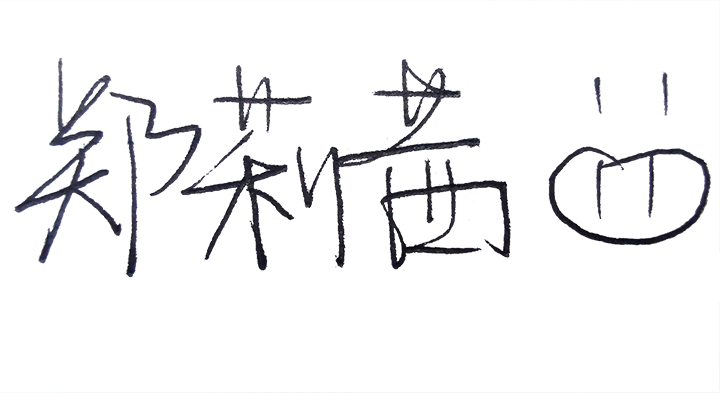 郑莉茜